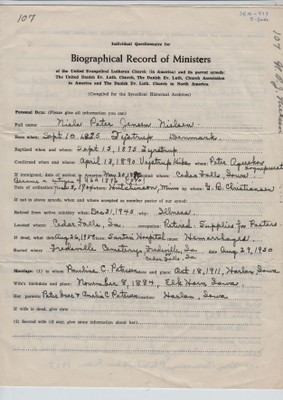 107
Individual Questionnaire for
Biographical Record of Ministers
of the United Evangelical Lutheran Church (in America) and its parent synods:
The United Danish Ev. Luth. Church, The Danish Ev. Luth. Church Association
in America and The Danish Ev. Luth. Church in North America.
(Compiled for the Synodical Historical Archives)
Personal Data: (Please give all information you can)
Full name Niels Peter Jensen Nielsen
Born when: Sept 10, 1875 Denmark
Baptized when and where: Sept 13, 1875
Confirmed when and where: April 13, 1890 When: Peter
If immigrated, date of arrival in America where: Cedar Falls, Iowa
Date of ordination: where Hutchinson, Minn by whom G. B. Christiansen
If not in above synods, when and where accepted as member pastor of our synod:
Retired from active ministry when Dec 31, 1945 why Illness
Located where: Cedar Falls, Ia. occupation Retired. Supplies for Pastors
If dead, what Aug 26, 1950 Hospital cause Hemorrhages
Buried where Fredsville Cemetery, Fredsville, Ia on Aug 29, 1950
Cedar Falls, Ia
Marriage: (1) to whom Pauline C. Petersen and place Oct 18, 1911, Harlan, Iowa
Wife's birthdate and place: November 8, 1884, Elk Horn, Iowa
Her parents C. Petersen Harlan, Iowa
If wife is dead, give date
(2) Second wife (if any, give same information about her)